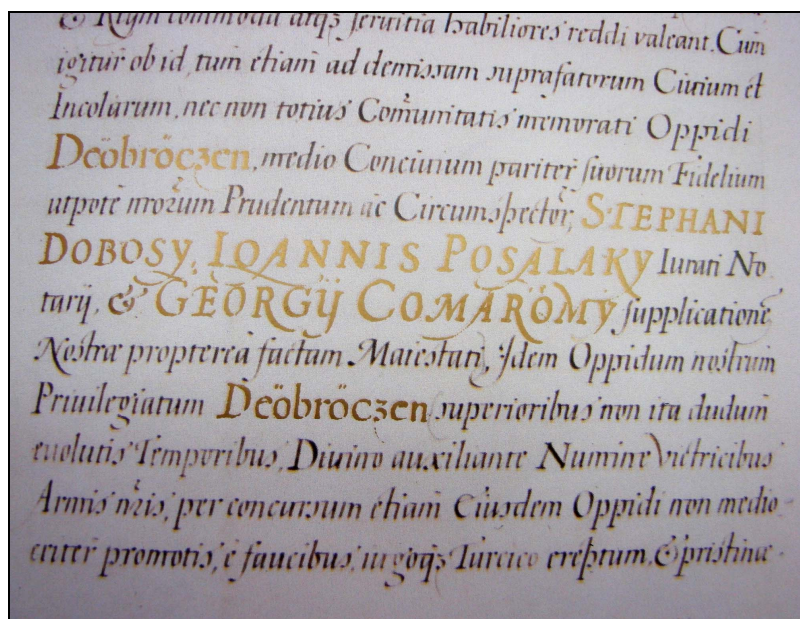 & Rgum commoda atqз seruitia habiliores reddi valeant. Cum
igitur ob id, tum etiam ad demissam suprafatorum Ciuium et
Incolarum, nec non totius Com̃unitatis memorati Oppidi
Deöbröczen, medio Conciuium pariter suorum Fidelium
utpote nrorum Prudentum ac Circumspector, STEPHANI
DOBOSY, IOANNIS POSALAKY Iurati No
tarij, & GEORGY COMAROMY supplicatione
Nostræ propterea factam Maiestati, Idem Oppidum nostrum
Priuilegiatum Deöbröczen superioribus non ita dudum
euolutis Temporibus, Diuino auxiliante Numine Victricibus
Armis nris, per concursum etiam Eiusdem Oppidi non medio
criter promotis, e faucibus, iugoqз Turcico ereptum, & pristinæ